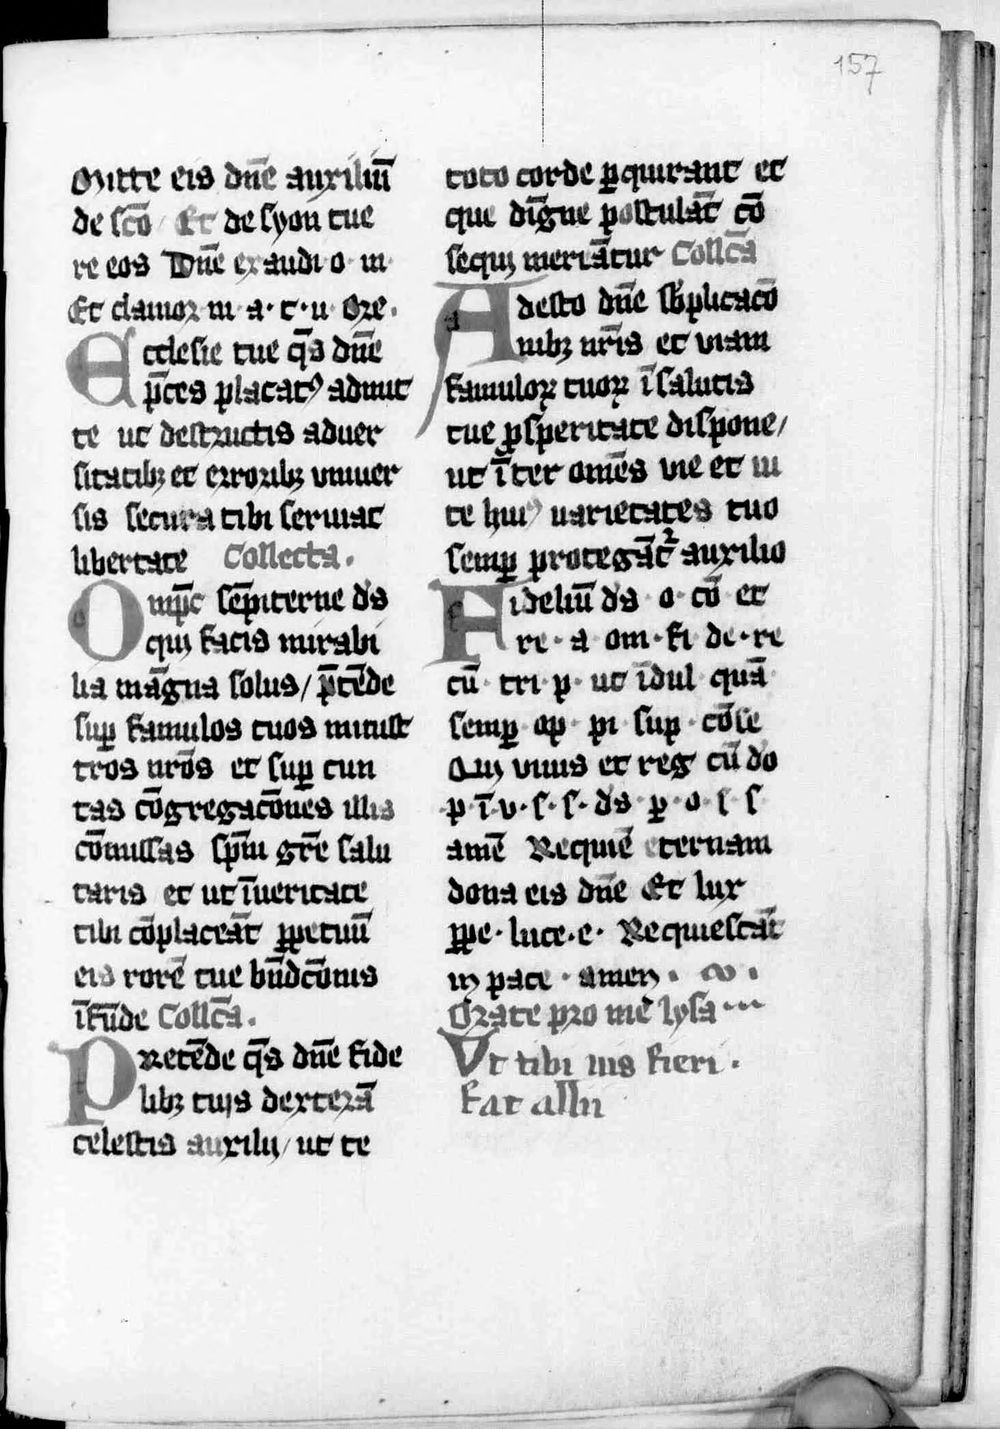 157
Mitte eis dn̄e auxiliū
de sc̄o / Et de syon tue
re eos Dn̄e exaudi o · m ·
Et clamor m · a · t · u · Ore ·
Ecclesie tue q̄s dn̄e
p̄ces placatꝰ admit
te ut destructis aduer
sitatibꝫ et erroribꝫ vniuer
sis secura tibi seruiat
libertate Collecta ·
Omp̄c sēpiterne ds̄
qui facis mirabi
lia māgna solus / p̄tēde
suꝑ famulos tuos minist
tros nrōs et suꝑ cun
tas cōgregacōnes illis
cōmissas sp̄m gr̄e salu
taris et ut īueritate
tibi cōplaceāt ꝑpetuū
eis rorē tue bn̄dcōnis
īfūde Collc̄a ·
Pretēde q̄s dn̄e fide
libꝫ tuis dexterā
celestis auxilij / ut te
toto corde ꝑquirant et
que dīgne postulāt cō
sequi meriātur Collc̄a
Adesto dn̄e sb̄plicacō
nibꝫ nr̄is et viam
famuloꝝ tuoꝝ ī salutis
tue ꝓsperitate dispone /
ut īter om̄es vie et ui
te huiꝰ uarietates tuo
semꝑ protegāt᷑ auxilio
Fideliū ds̄ · o · cō · et
re · a · om · fi · de · re
cū · tri · p · ut īdul · quā
semꝑ · op · pi · sup · cōse
Qui viuis et reg cū dō
p · ī · v · s · s · ds̄ · ꝑ · o · s · s
amē Requiē eternam
dona eis dn̄e Et lux
ꝑpe · luce · e · Requiescāt
in pace · amen ·
Orate pro mē lysa
Vt tibi uis fieri ·
fac alln